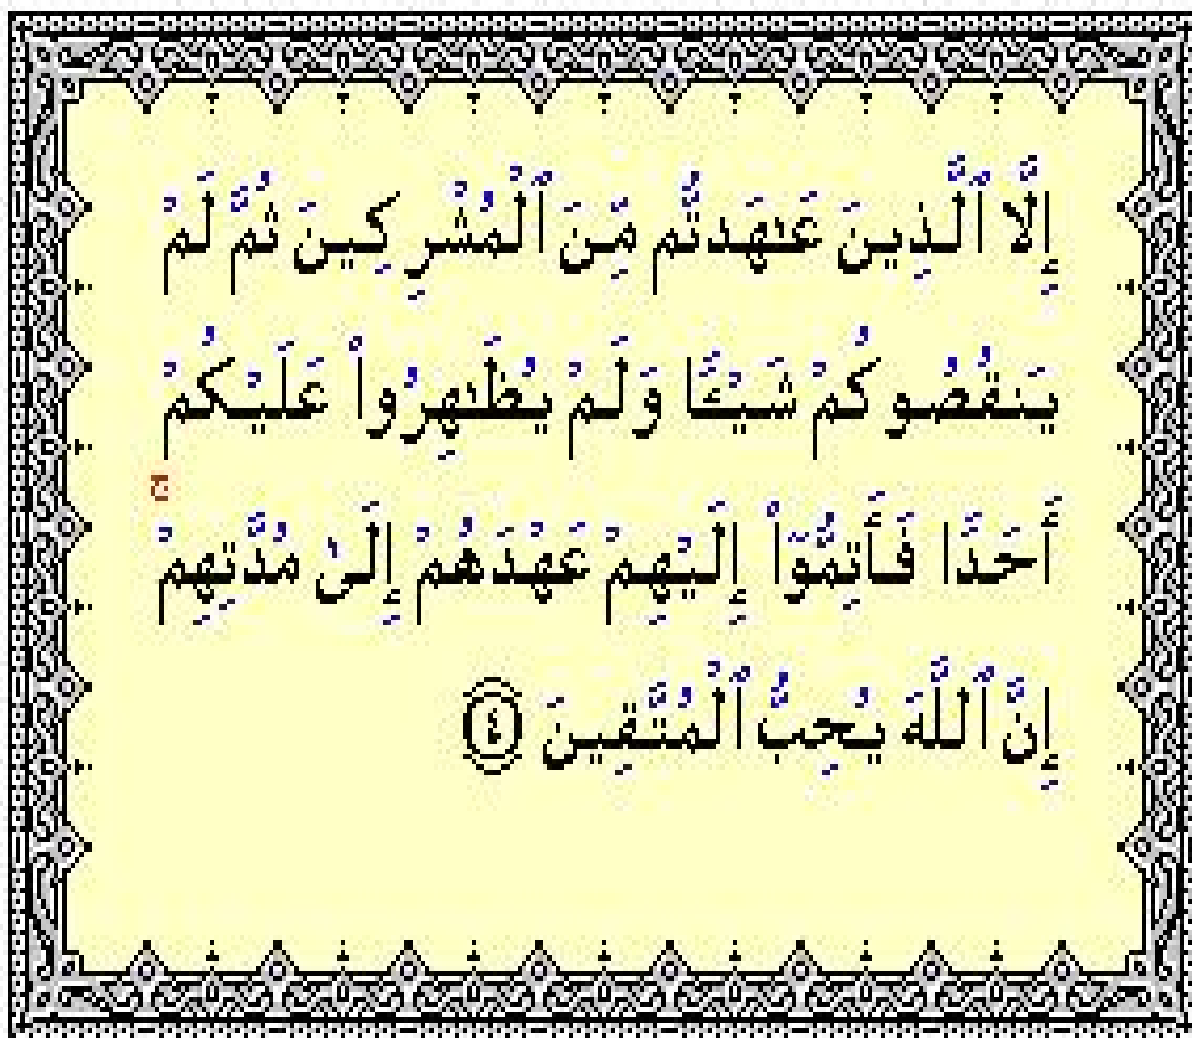 إِلَّا ٱلَّذِينَ عَـٰهَدتُّم مِّنَ ٱلْمُشْرِكِينَ ثُمَّ لَمْ
يَنقُصُوكُمْ شَيْـًٔا وَلَمْ يُظَـٰهِرُوا۟ عَلَيْكُمْ
أَحَدًا فَأَتِمُّوٓا۟ إِلَيْهِمْ عَهْدَهُمْ إِلَىٰ مُدَّتِهِمْ ۚ
إِنَّ ٱللَّهَ يُحِبُّ ٱلْمُتَّقِينَ ٤